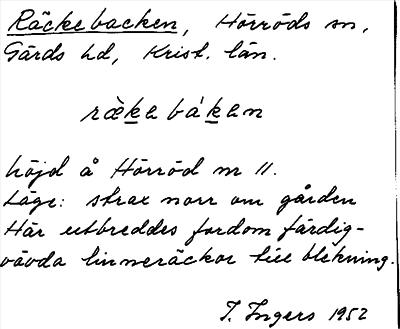 Räckebacken, Hörröds sn,
Gärds hd, Krist. län.
ræ̀ke báken
höjd å Hörröd nr 11.
Läge: strax norr om gården
Här utbreddes fordom färdig-
vävda linneräckor till blekning.
I. Ingers 1952